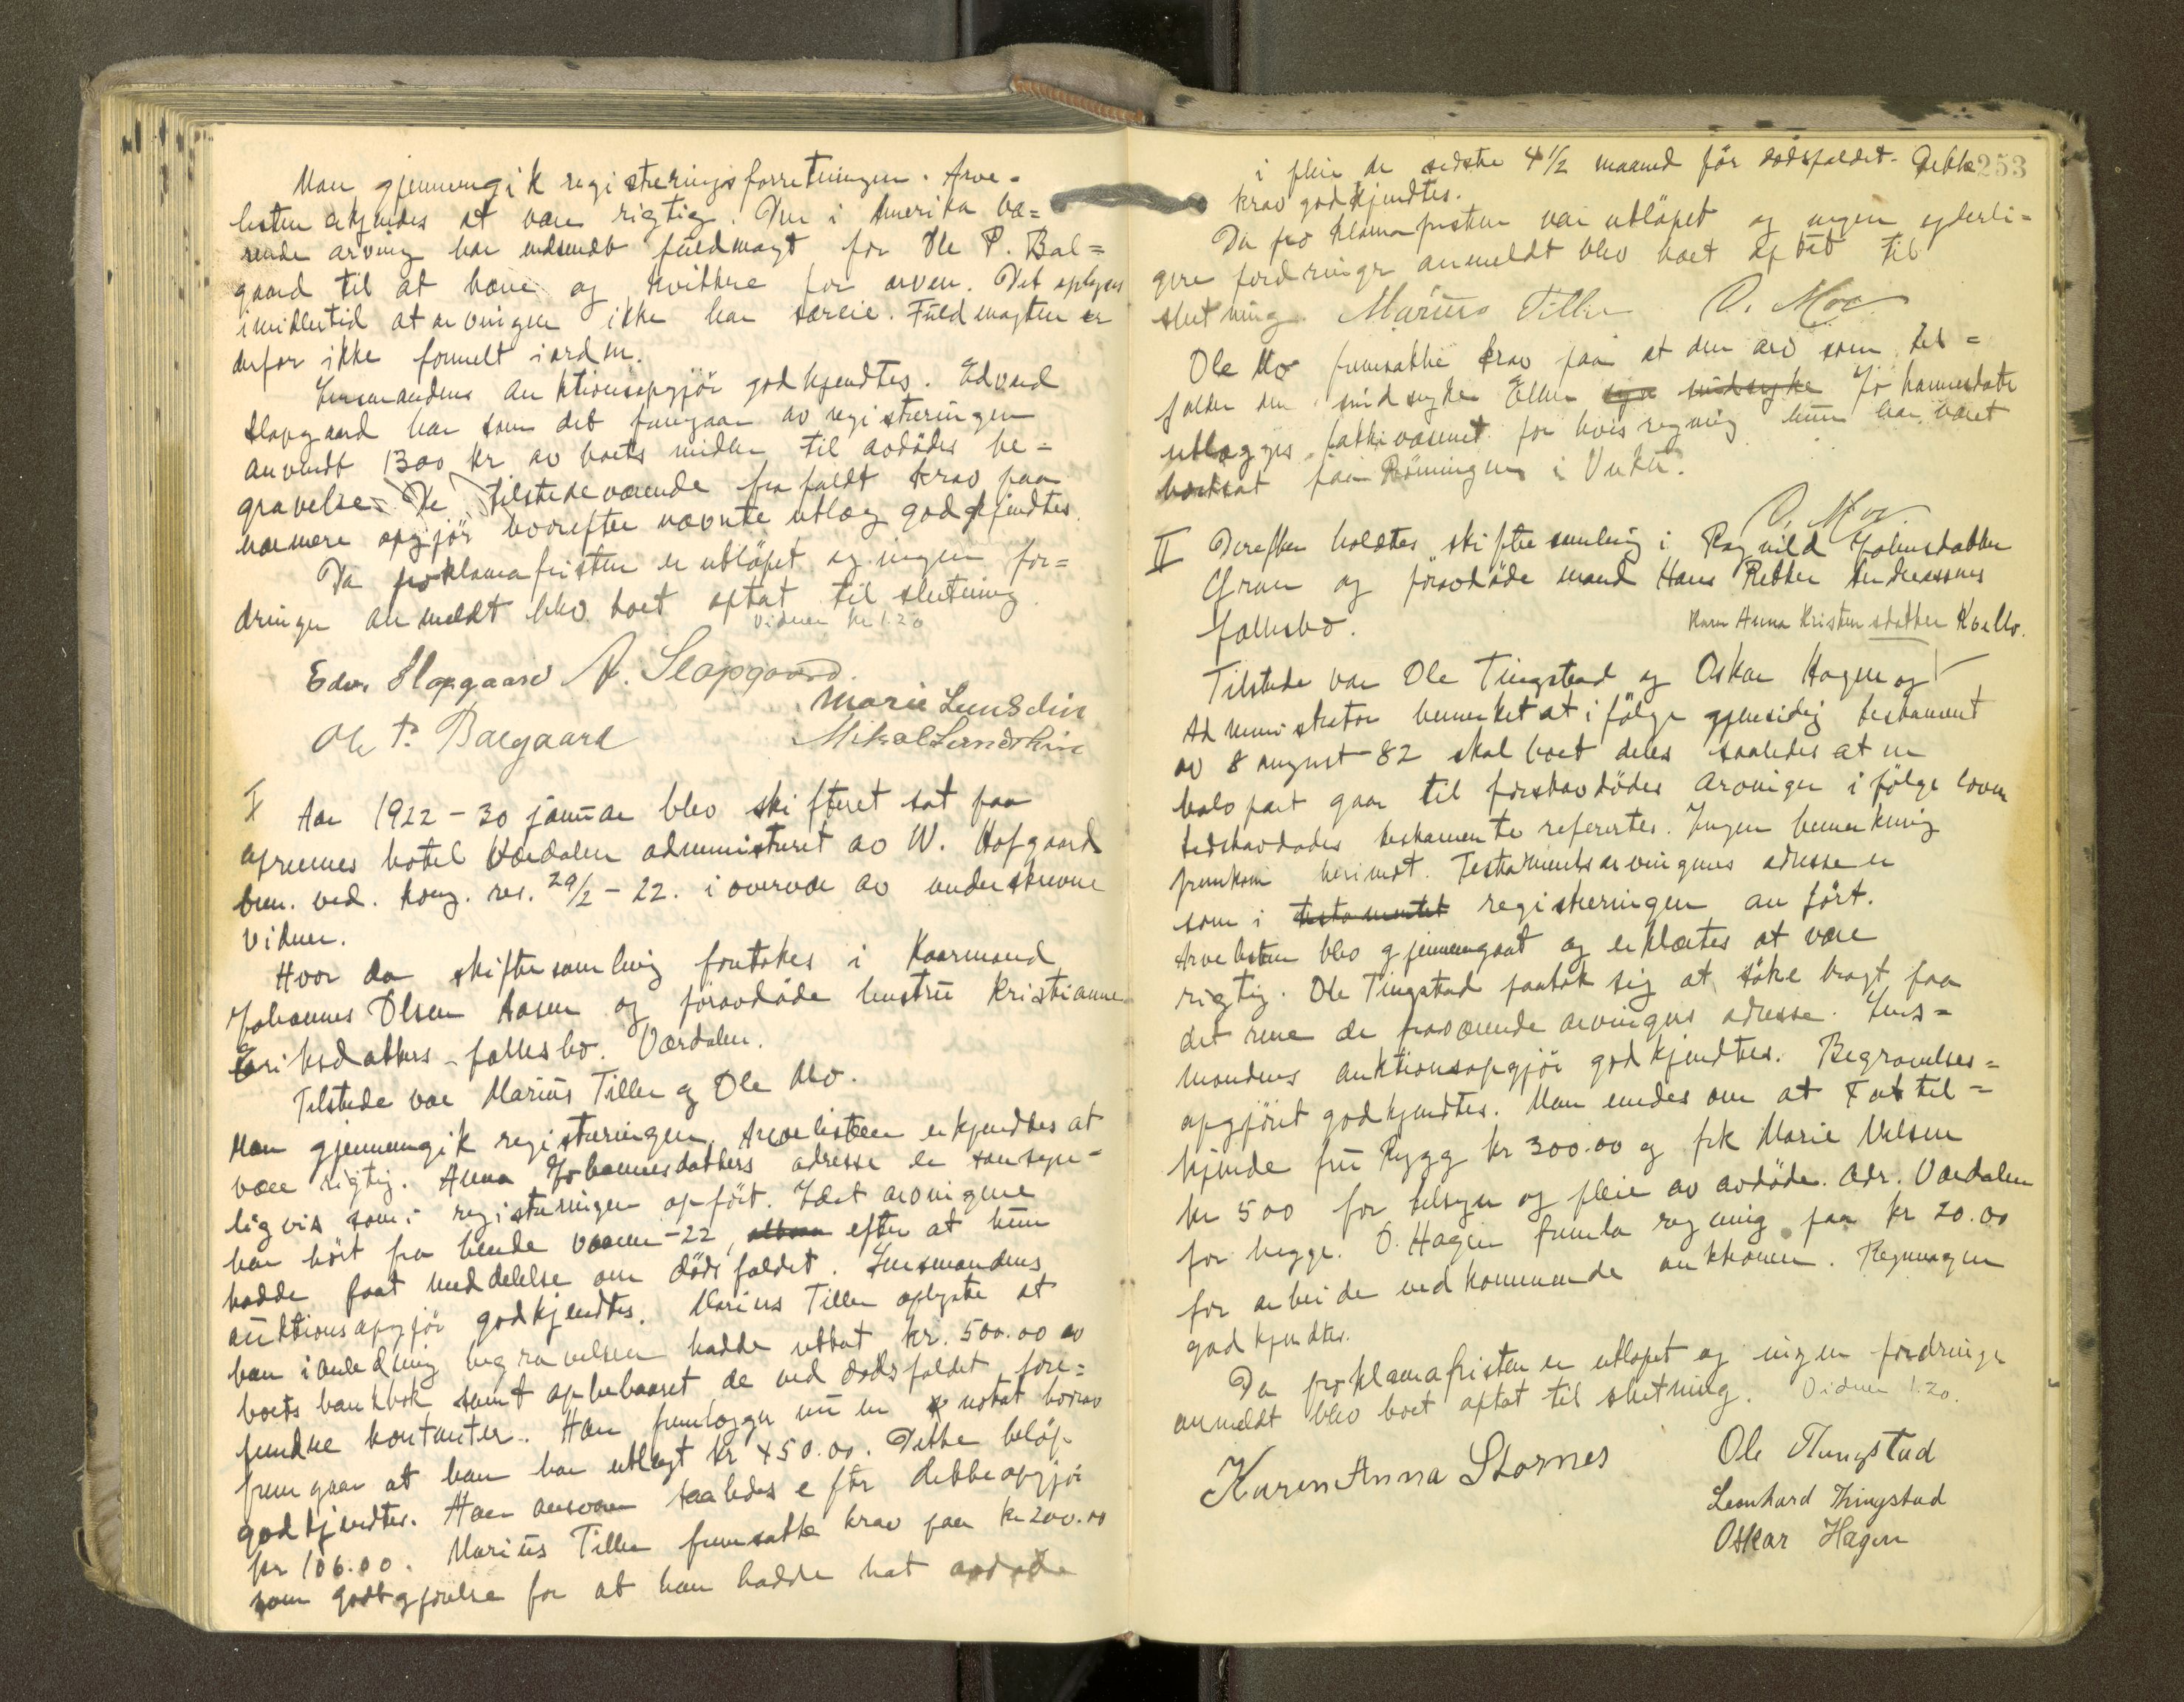 Man gjennemgik registreringsforretningen. Arve-
listen erkjendes at være rigtig. Den i Amerika væ=
rende arving har indsendt fuldmagt for Ole P. Bal=
gaard til at hæve og kvittere for arven. Det oplyses
imidlertid at arvingen ikke har særeie. Fuldmagten er
derfor ikke formelt i orden.
Lensmandens auktionsopgjör godkjendtes. Edvard
Slapgaard har som det fremgaar av registreringen
anvendt 1300 kr av boets midler til avdödes be=
gravelse. De tilstedeværende frafaldt krav paa
nærmere opgjör hvorefter nævnte utlæg godkjendtes.
Da proklamafristen er utlöpet og ingen for=
dringer anmeldt blev boet optat til slutning.
Vidner kr 1.20
Edv. Slapgaard A. Slapgaard.
Marie Lunddin
Ole P. Balgaard
I Aar 1922 - 30 januar blev skifteret sat paa
hotel Værdalen administreret av W. Hofgaard
ved. kong. res. 29/2 - 22. i overvær av underskrevne
vidner.
Hvor da skiftesamling foretokes i Kaarmand
Johannes Olsen Aasen og föravdöde hustru Kristianne
Eriksdatters fællesbo. Værdalen.
Tilstede var Marius Tiller og Ole Mo.
Man gjennemgik registreringen. Arvelisten erkjendtes at
være rigtig. Anna Johannesdatters adresse er sansyn-
ligvis som i registreringen opfört. Idet arvingene
har hört fra hende vaaren -22, efter at hun
hadde faat meddelelse om dödsfaldet. Lensmandens
auktionsopgjör godkjendtes. Marius Tiller oplyste at
han i anledning begravelsen hadde uttat kr. 500.00 av
boets bankbok samt opbevaret de ved dödsfaldet fore=
fundne kontanter. Han fremlægger nu en notat hvorav
fremgaar at han har utlagt kr 450.00. Dette belöp
godkjendtes. Han ansvarer saaledes efter dette opgjör
kr 106.00. Marius Tiller fremsatte krav paa kr 200.00
som godtgjörelse for at han hadde hat avdöde
253
i pleie de sidste 4 1/2 maaned för dödsfaldet. Dette
krav godkjendtes.
Da proklamafristen var utlöpet og ingen yderli=
gere fordringer anmeldt blev boet optat til
slutning. Marius Tiller O. Moe
Ole Mo fremsatte krav paa at den arv som til=
falder den sindsyke Ellen sindsyke Johannesdatter
utlægges fattivæsenet for hvis regning hun har været
bortsat paa Römmingen i Vuku.
O. Moe.
II Derefter holdtes skiftesamling i Ragnild Johnsdatter
Gran og föravdöde mand Hans Petter Andreassens
fællesbo.
Karen Anna Kristensdatter Kvello.
Tilstede var Ole Tingstad og Oskar Hagen og
Administrator bemerket at ifölge gjensidig testament
av 8 august 82 skal boet deles saaledes at en
halvpart gaar til förstavdödes arvinger ifölge loven
sidstavdödes testamente refereertes. Ingen bemerkning
fremkom herimot. Testamentsarvingenes adresse er
som i testamentet registreringen anfört.
Arvelisten blev gjennemgaat og erklærtes at være
rigtig. Ole Tingstad paatok sig at söke bragt paa
det rene de fraværende arvingers adresse. Lens=
mandens auktionsopgjör godkjendtes. Begravelses=
opgjöret godkjendtes. Man enedes om at
kjende fru Rygg kr 300.00 og frk Marie Nilsen
kr 500 for tilsyn og pleie av avdöde. Adr. Værdalen
for begge. O. Hagen fremla regning paa kr 20.00
for arbeide vedkommende auktionen. Regningen
godkjendtes.
Da proklamafristen er utlöpet og ingen fordringer
anmeldt blev boet optat til slutning. Vidner 1.20.
Karen Anna Stornes
Ole Tingstad
Leonhard Tingstad
Oskar Hagen